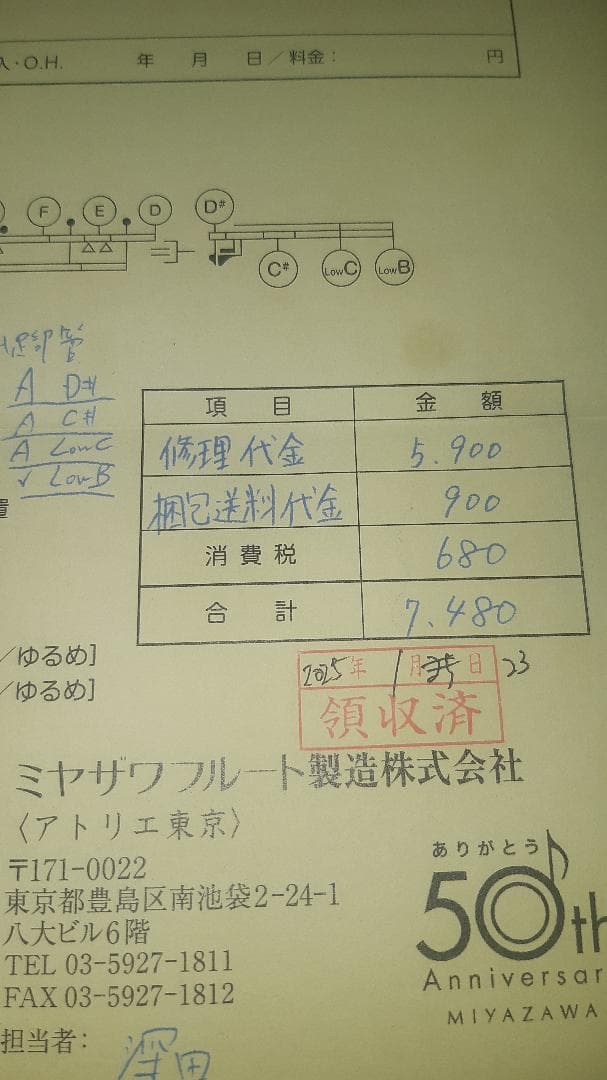 ・O.H. 年 月 日／料金： 円
F E D D#
C# LowC LowB
足部管
A D#
A C#
A LowC
✓ LowB
項 目 金 額
修理代金 5.900
梱包送料代金 900
消費税 680
合 計 7.480
／ゆるめ]
／ゆるめ]
2025年 1月 日 23
領収済
ミヤザワフルート製造株式会社
〈アトリエ東京〉
〒171-0022
東京都豊島区南池袋2-24-1
八大ビル6階
TEL 03-5927-1811
FAX 03-5927-1812
担当者: 深田
ありがとう
50th
Anniversar
MIYAZAWA